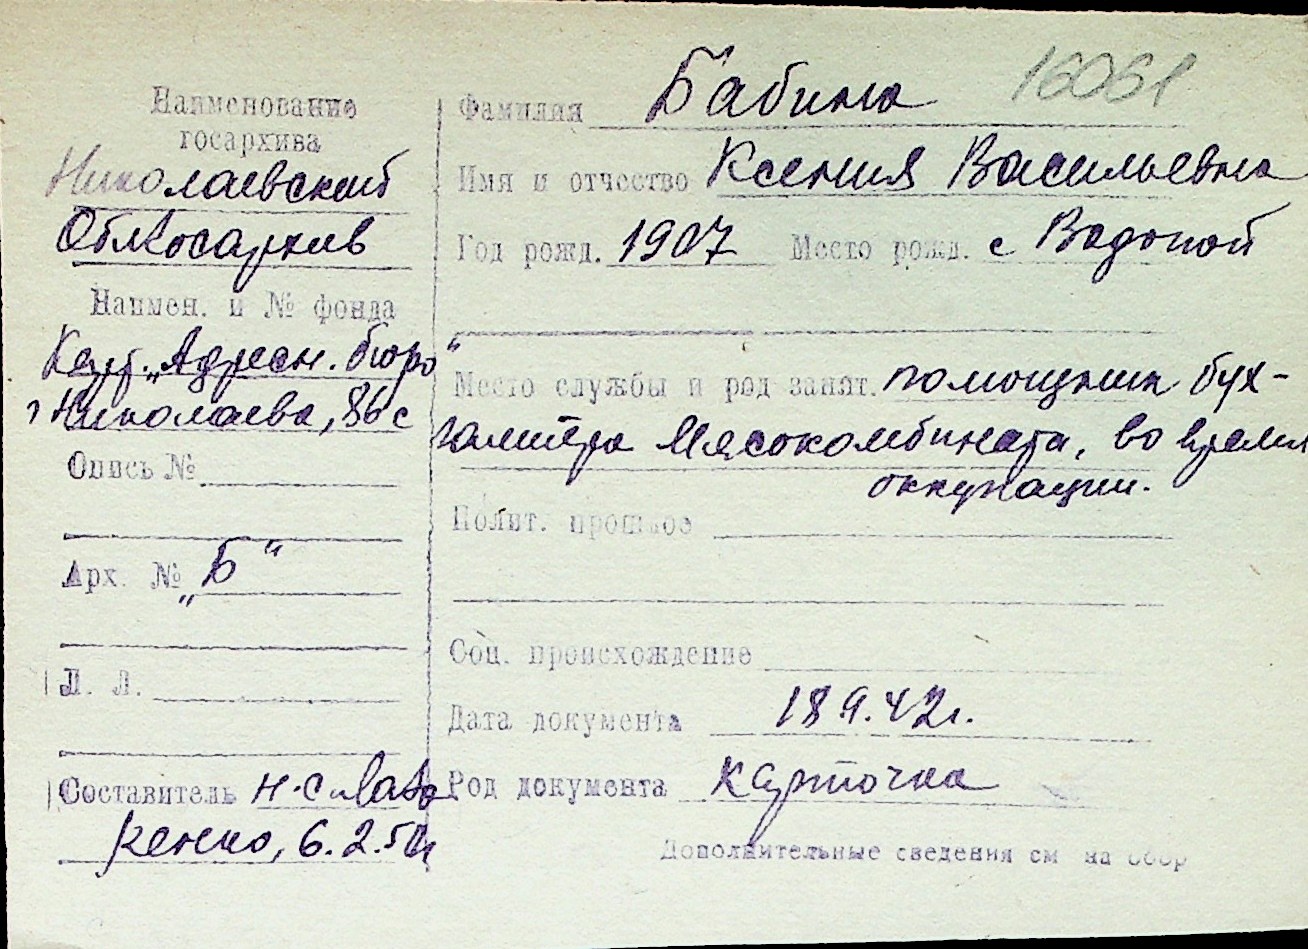 Наименование
госархива
Николаевский
Облгосархив
Наимен. и № фонда
Карт. „Адресн. бюро“
г Николаева, 86 с
Опись №
Арх. № „Б“
Л. Л.
Составитель
кенко, 6.2.50г
16061
Фамилия Бабина
Имя и отчество Ксения Васильевна
Год рожд. 1907 Место рожд. с Водопой
Место службы и род занят. помощник бух-
галтера Мясокомбината, во время
оккупации.
Полит. прошлое
Соц. происхождение
Дата документа 18 9.42г.
Род документа карточка
Дополнительные сведения см на обор